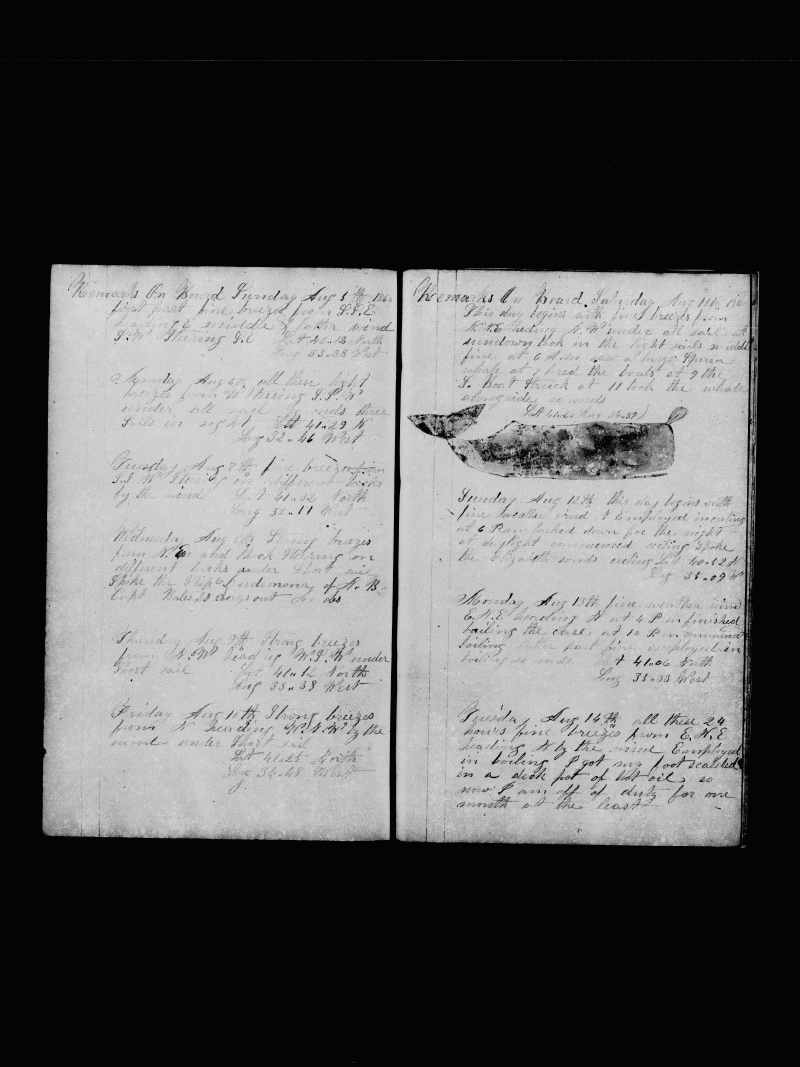 Remarks On Board Sunday Aug 5th 1860
first part fine breezes from S.S.E
heading E middle & latter wind
S.W Steering S.E Lat 42.13 North
Long 33.38 West
Monday Aug 6th all these light
breezes from W Steering S.S.W
under all sail ends three
Sails in sight Latt 41.29 N
Long 32.46 West
Tuesday Aug 7th fine breezes from
S.S.W Steering on different tacks
by the wind Lat 41.32 North
Long 33.11 West
Wednesday Aug 8th Strong breezes
from N.E and thick Steering on
different tacks under Short sail
Spoke the Ship of N.B.
Capt days out No obs
Thursday Aug 9th Strong breezes
from N.W heading W.S.W under
Short sail Lat 41.12 North
Long 33.38 West
Friday Aug 10th Strong breezes
from N heading W.N.W by the
wind under Short sail
Latt 41.25 North
Long 34.48 West
Remarks On Board Saturday Aug 11th 1860
This day begins with fine breezes from
N.N.E heading N.W under all sail at
sundown took in the light sails middle
fine at 6 A.M saw a large Sperm
whale at 7 lowered the boats at 9 the
S. Boat Struck at 11 took the whale
alongside so ends
Latt Long
Sunday Aug 12th this day begins with
fine weather wind N E Employed in cutting
at 6 P.m. knocked down for the night
at daylight commenced cutting Spoke
the Elizabeth so ends cutting Lat 40.52 N
Long 35.09 W
Monday Aug 13th fine weather wind
E.N.E heading N at 4 P.m finished
bailing the case at 10 P.m commenced
boiling latter part fine employed in
boiling so ends Latt 41.06 North
Long 35.33 West
Tuesday Aug 14th all these 24
hours fine breezes from E.N.E
heading N by the wind Employed
in boiling I got my foot scalded
in a deck pot of hot oil, so
now I am off of duty for one
month at the least